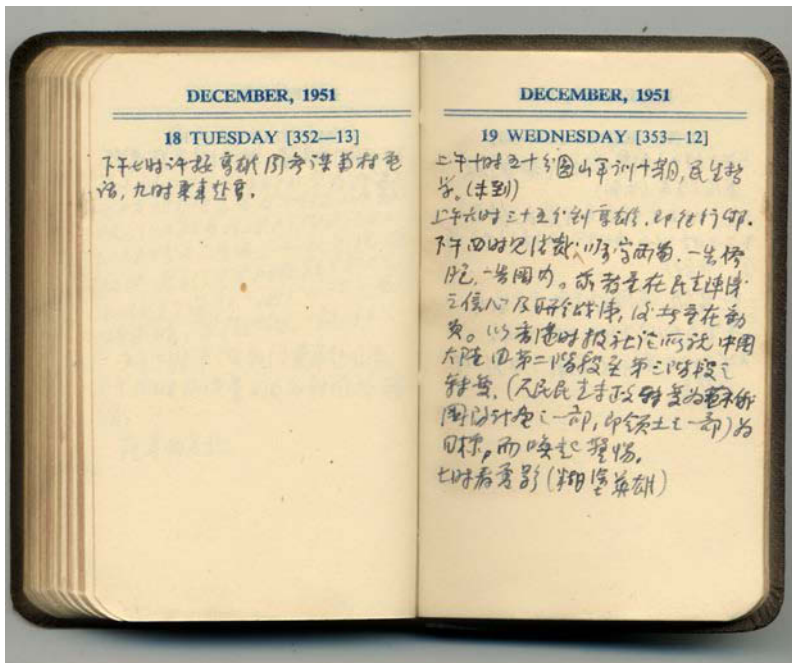 DECEMBER, 1951
18 TUESDAY [352—13]
下午七时许接高雄周参谋菊村电
话,九时乘车赴高。
DECEMBER, 1951
19 WEDNESDAY [353—12]
上午十时五十分圆山军训十期,民生哲
学。(未到)
上午六时三十五分到高雄,即往行邸。
下午四时见总裁,嘱写两篇,一告侨
胞,一告国内。前者重在民主阵线
之信心及研究战法,後者重在动
员。以香港时报社论所说中国
大陆由第二阶段至第三阶段之
转变,(人民民主专政转变为苏俄
国防计划之一部,即领土之一部)为
目标,而唤起警惕。
七时看电影(糊塗英雄)